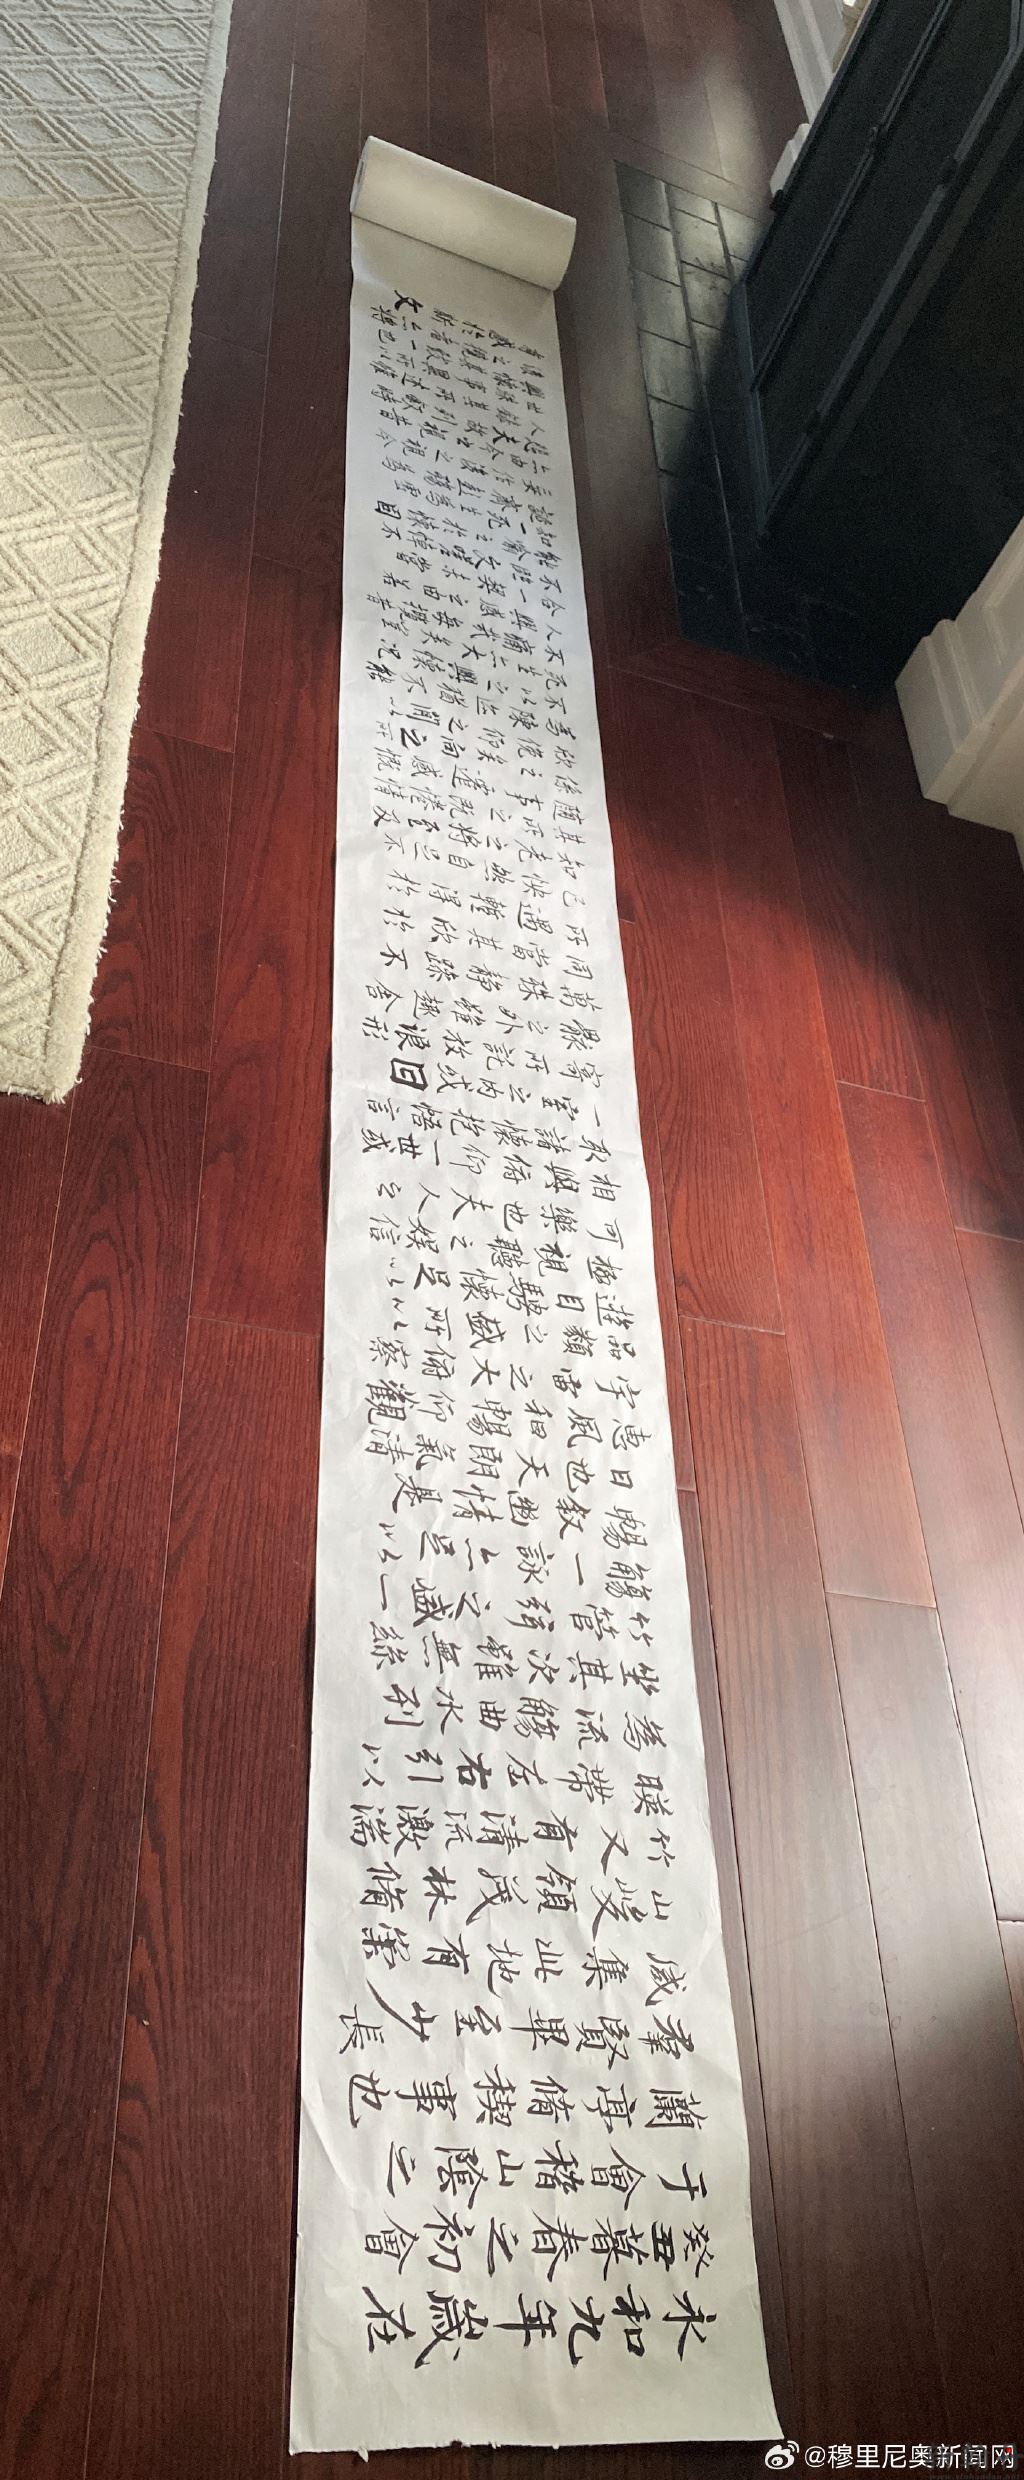 永和九年歲在
癸丑暮春之初會
于會稽山陰之
蘭亭脩禊事也
羣賢畢至少長
咸集此地有崇
山峻領茂林脩
竹又有清流激湍
暎帶左右引以
為流觴曲水列
坐其次雖無絲
竹管弦之盛一
觴一詠亦足以
暢叙幽情是
日也天朗氣清
惠風和暢仰觀
宇宙之大俯察
品類之盛所以
遊目騁懷足以
極視聽之娛信
可樂也夫人之
相與俯仰一世或
取諸懷抱悟言
一室之內或因
寄所託放浪形
骸之外雖趣舍
萬殊靜躁不
同當其欣於
所遇蹔得於
己快然自足不
知老之將至及
其所之既惓情
隨事遷感慨
係之矣向之所
欣俛仰之間以
為陳迹猶不能
不以之興懷況
死生亦大矣豈
不痛哉每攬昔
人興感之由若
合一契未嘗
不臨文嗟悼不
能喻之於懷固
知一死生為虛
誕齊彭殤為
妄作後之視今
亦由今之視昔
悲夫故列叙時
人錄其所述
世殊事異所以
興懷其致一
後之攬者亦將
感於斯文
@穆里尼奥新闻网